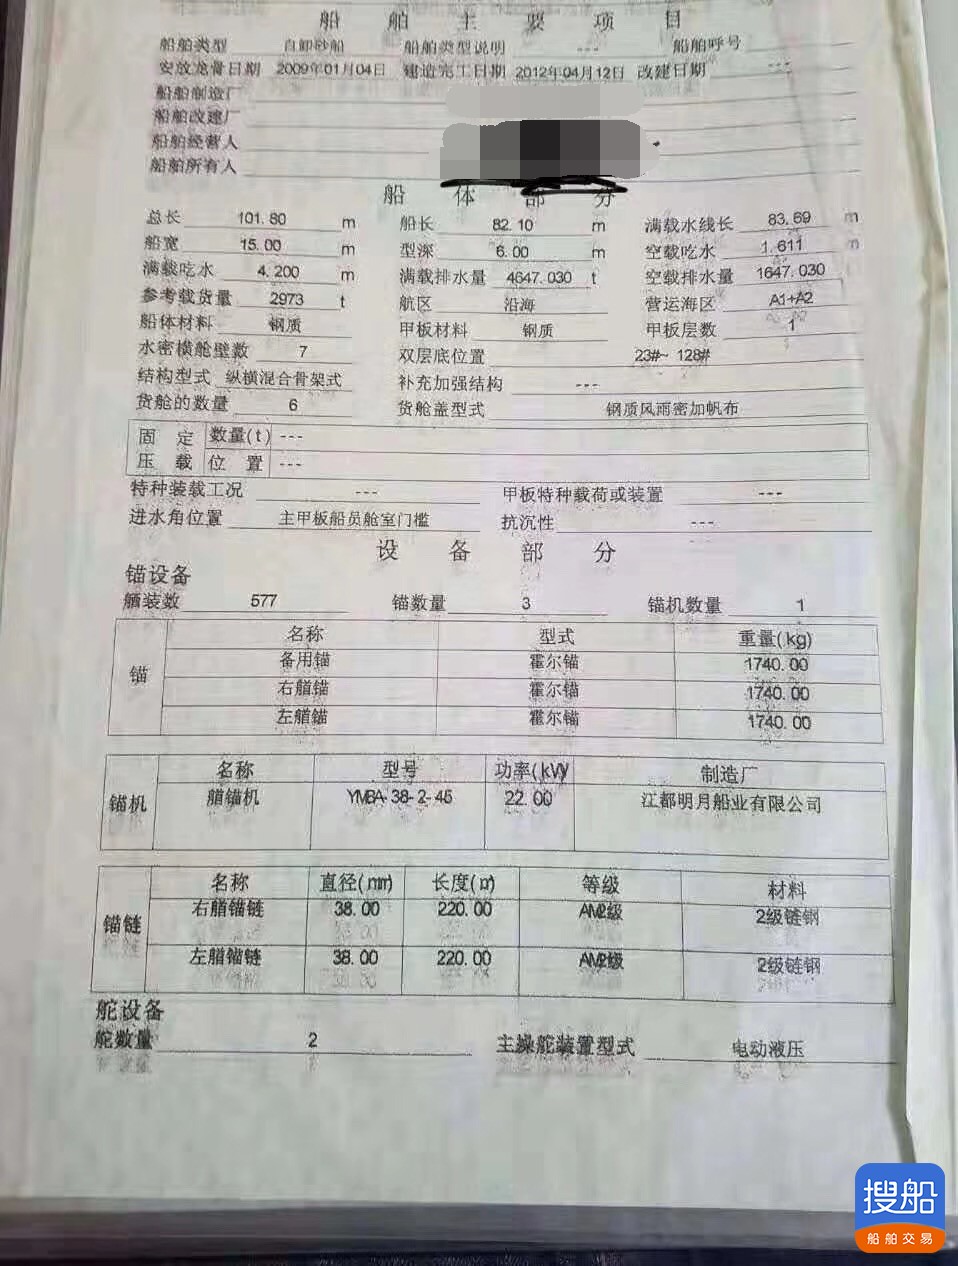 船 舶 主 要 项 目
船舶类型 自卸砂船 船舶类型说明 --- 船舶呼号
安放龙骨日期 2009年01月04日 建造完工日期 2012年04月12日 改建日期 ---
船舶制造厂
船舶改建厂
船舶经营人
船舶所有人
船 体 部 分
总长 101.80 m 船长 82.10 m 满载水线长 83.69 m
船宽 15.00 m 型深 6.00 m 空载吃水 1.611 m
满载吃水 4.200 m 满载排水量 4647.030 t 空载排水量 1647.030
参考载货量 2973 t 航区 沿海 营运海区 A1+A2
船体材料 钢质 甲板材料 钢质 甲板层数 1
水密横舱壁数 7 双层底位置 23#~ 128#
结构型式 纵横混合骨架式 补充加强结构 ---
货舱的数量 6 货舱盖型式 钢质风雨密加帆布
固 定 数量(t) ---
压 载 位 置 ---
特种装载工况 --- 甲板特种载荷或装置 ---
进水角位置 主甲板船员舱室门槛 抗沉性 ---
设 备 部 分
锚设备
舾装数 577 锚数量 3 锚机数量 1
名称 型式 重量(kg)
锚 备用锚 霍尔锚 1740.00
右艏锚 霍尔锚 1740.00
左艏锚 霍尔锚 1740.00
名称 型号 功率(kW) 制造厂
锚机 艏锚机 YMBA-38-2-45 22.00 江都明月船业有限公司
名称 直径(mm) 长度(m) 等级 材料
锚链 右艏锚链 38.00 220.00 AM2级 2级链钢
左艏锚链 38.00 220.00 AM2级 2级链钢
舵设备
舵数量 2 主操舵装置型式 电动液压
搜船
船舶交易